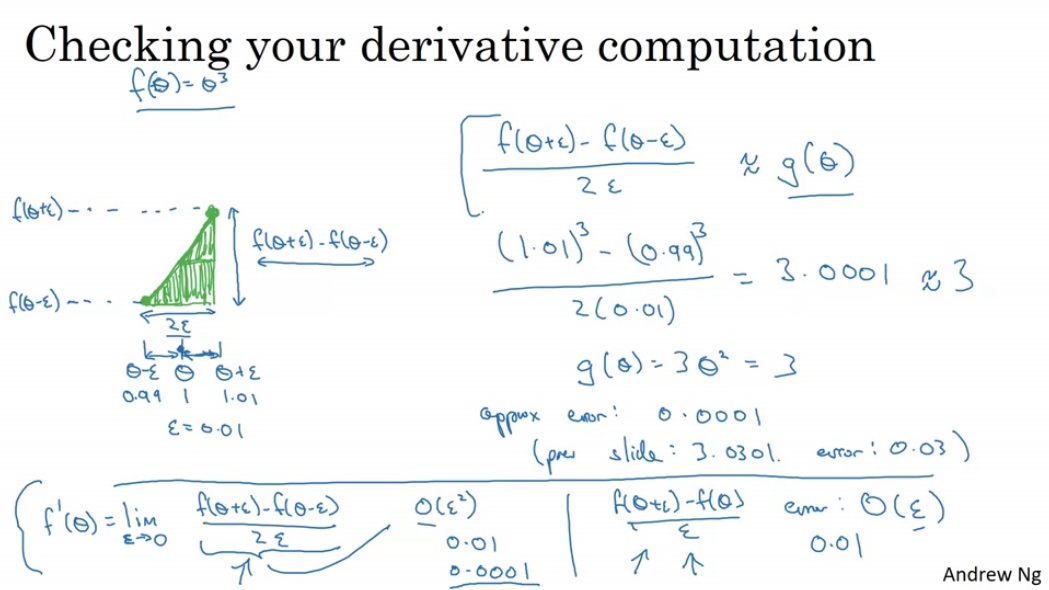 Checking your derivative computation
f(θ) = θ³
f(θ+ε) - f(θ-ε)
2ε
≈ g(θ)
f(θ+ε)
f(θ+ε) - f(θ-ε)
f(θ-ε)
2ε
θ-ε θ θ+ε
0.99 1 1.01
ε = 0.01
(1.01)³ - (0.99)³
2(0.01)
= 3.0001 ≈ 3
g(θ) = 3θ² = 3
approx error: 0.0001
(prev slide: 3.0301. error: 0.03)
f'(θ) = lim ε→0
f(θ+ε) - f(θ-ε)
2ε
O(ε²)
0.01
0.0001
f(θ+ε) - f(θ)
ε
error: O(ε)
0.01
Andrew Ng